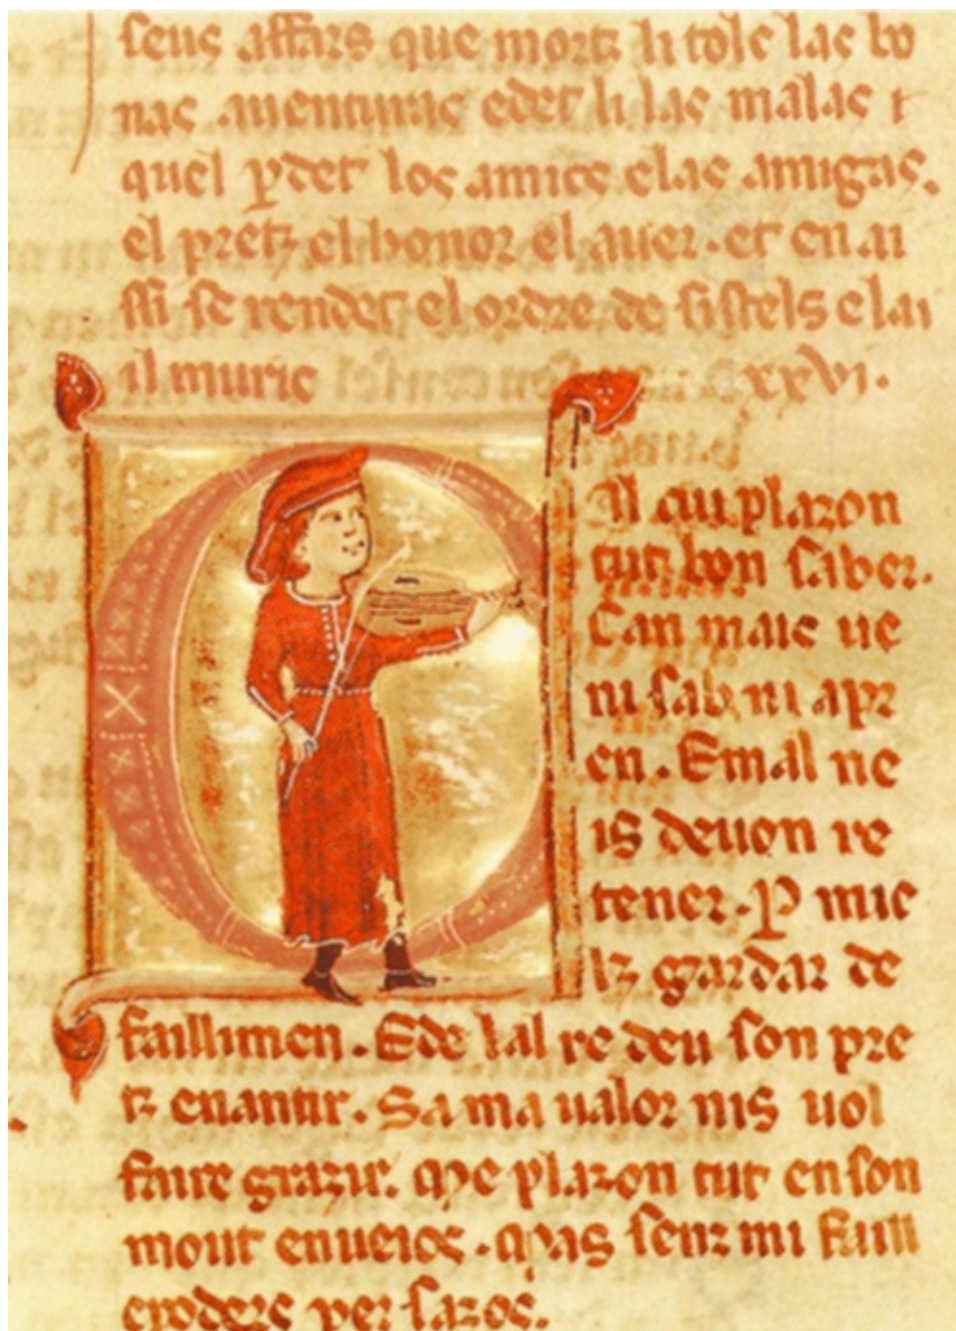 seus affars que mortz li tolc las bo
nas auenturas edet li las malas τ
quel ꝑdet los amics elas amigas.
el pretz elhonor el auer. et en ai
ssi se rendet el ordre de sistels elai
il muric xxvi.
il cui plazon
tut bon saber.
Can mais ue
ni sab ni apr
en. E mal ne
is deuon re
tener. P mie
lz gardar de
faillimen. Ede lal re deu son pre
tz enantir. Sa ma ualor nis uol
faire grazir. que plazon tut enson
mout enueios. qpas senz mi
per sazos.